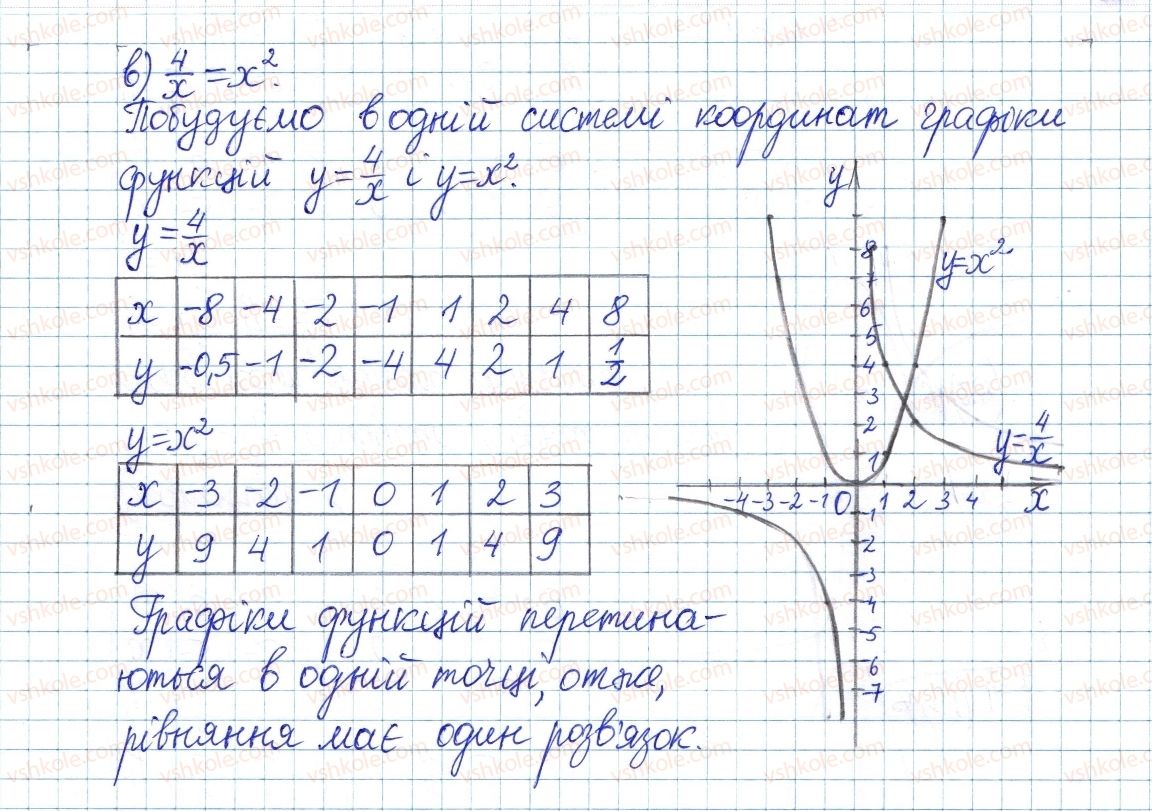 в) 4/x = x².
Побудуємо в одній системі координат графіки
функцій y = 4/x і y = x².
y = 4/x
x -8 -4 -2 -1 1 2 4 8
y -0,5 -1 -2 -4 4 2 1 1/2
y = x²
x -3 -2 -1 0 1 2 3
y 9 4 1 0 1 4 9
Графіки функцій перетина-
ються в одній точці, отже,
рівняння має один розв'язок.
y
8
y = x²
7
6
5
4
3
2
y = 4/x
1
-4 -3 -2 -1 0 1 2 3 4 x
-1
2
-3
4
-5
6
-7
vshkole.com